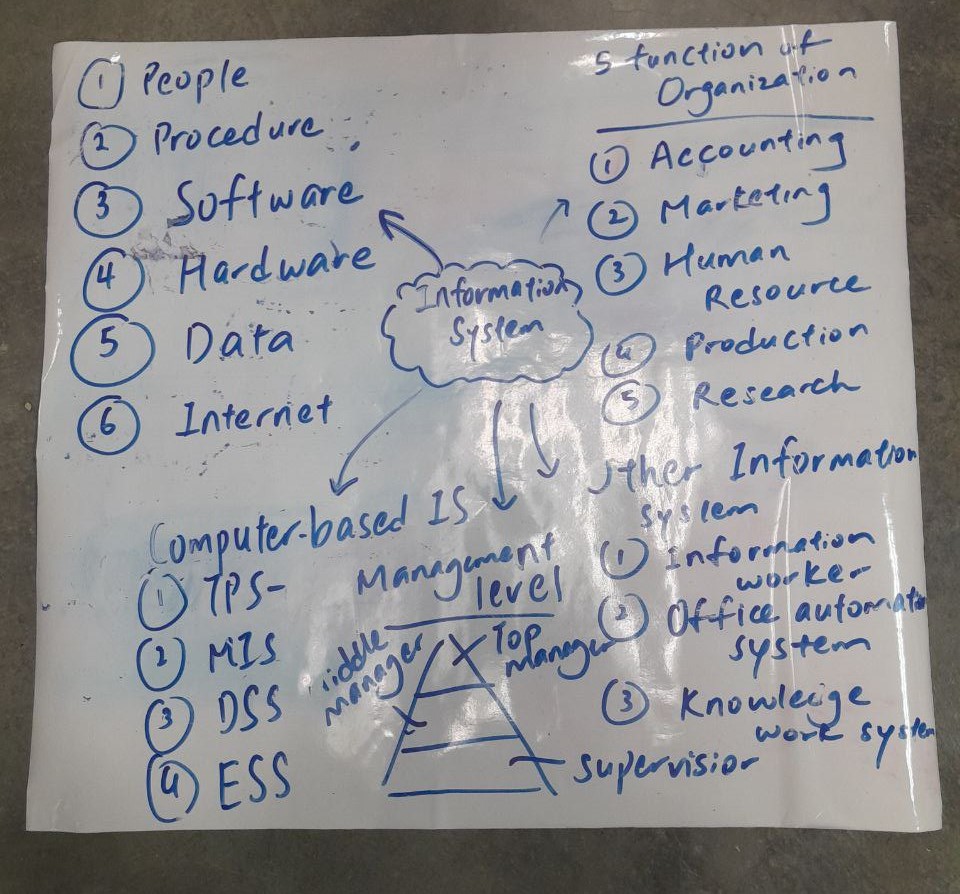 ① People
② Procedure
③ Software
④ Hardware
⑤ Data
⑥ Internet
5 function of
Organization
① Accounting
② Marketing
③ Human
Resource
④ Production
⑤ Research
Information
System
Computer-based IS
① TPS-
② MIS
③ DSS
④ ESS
Management
level
Top
manager
iddle
manager
supervisior
ther Information
system
① Information
worker
② Office automat
system
③ Knowledge
work system